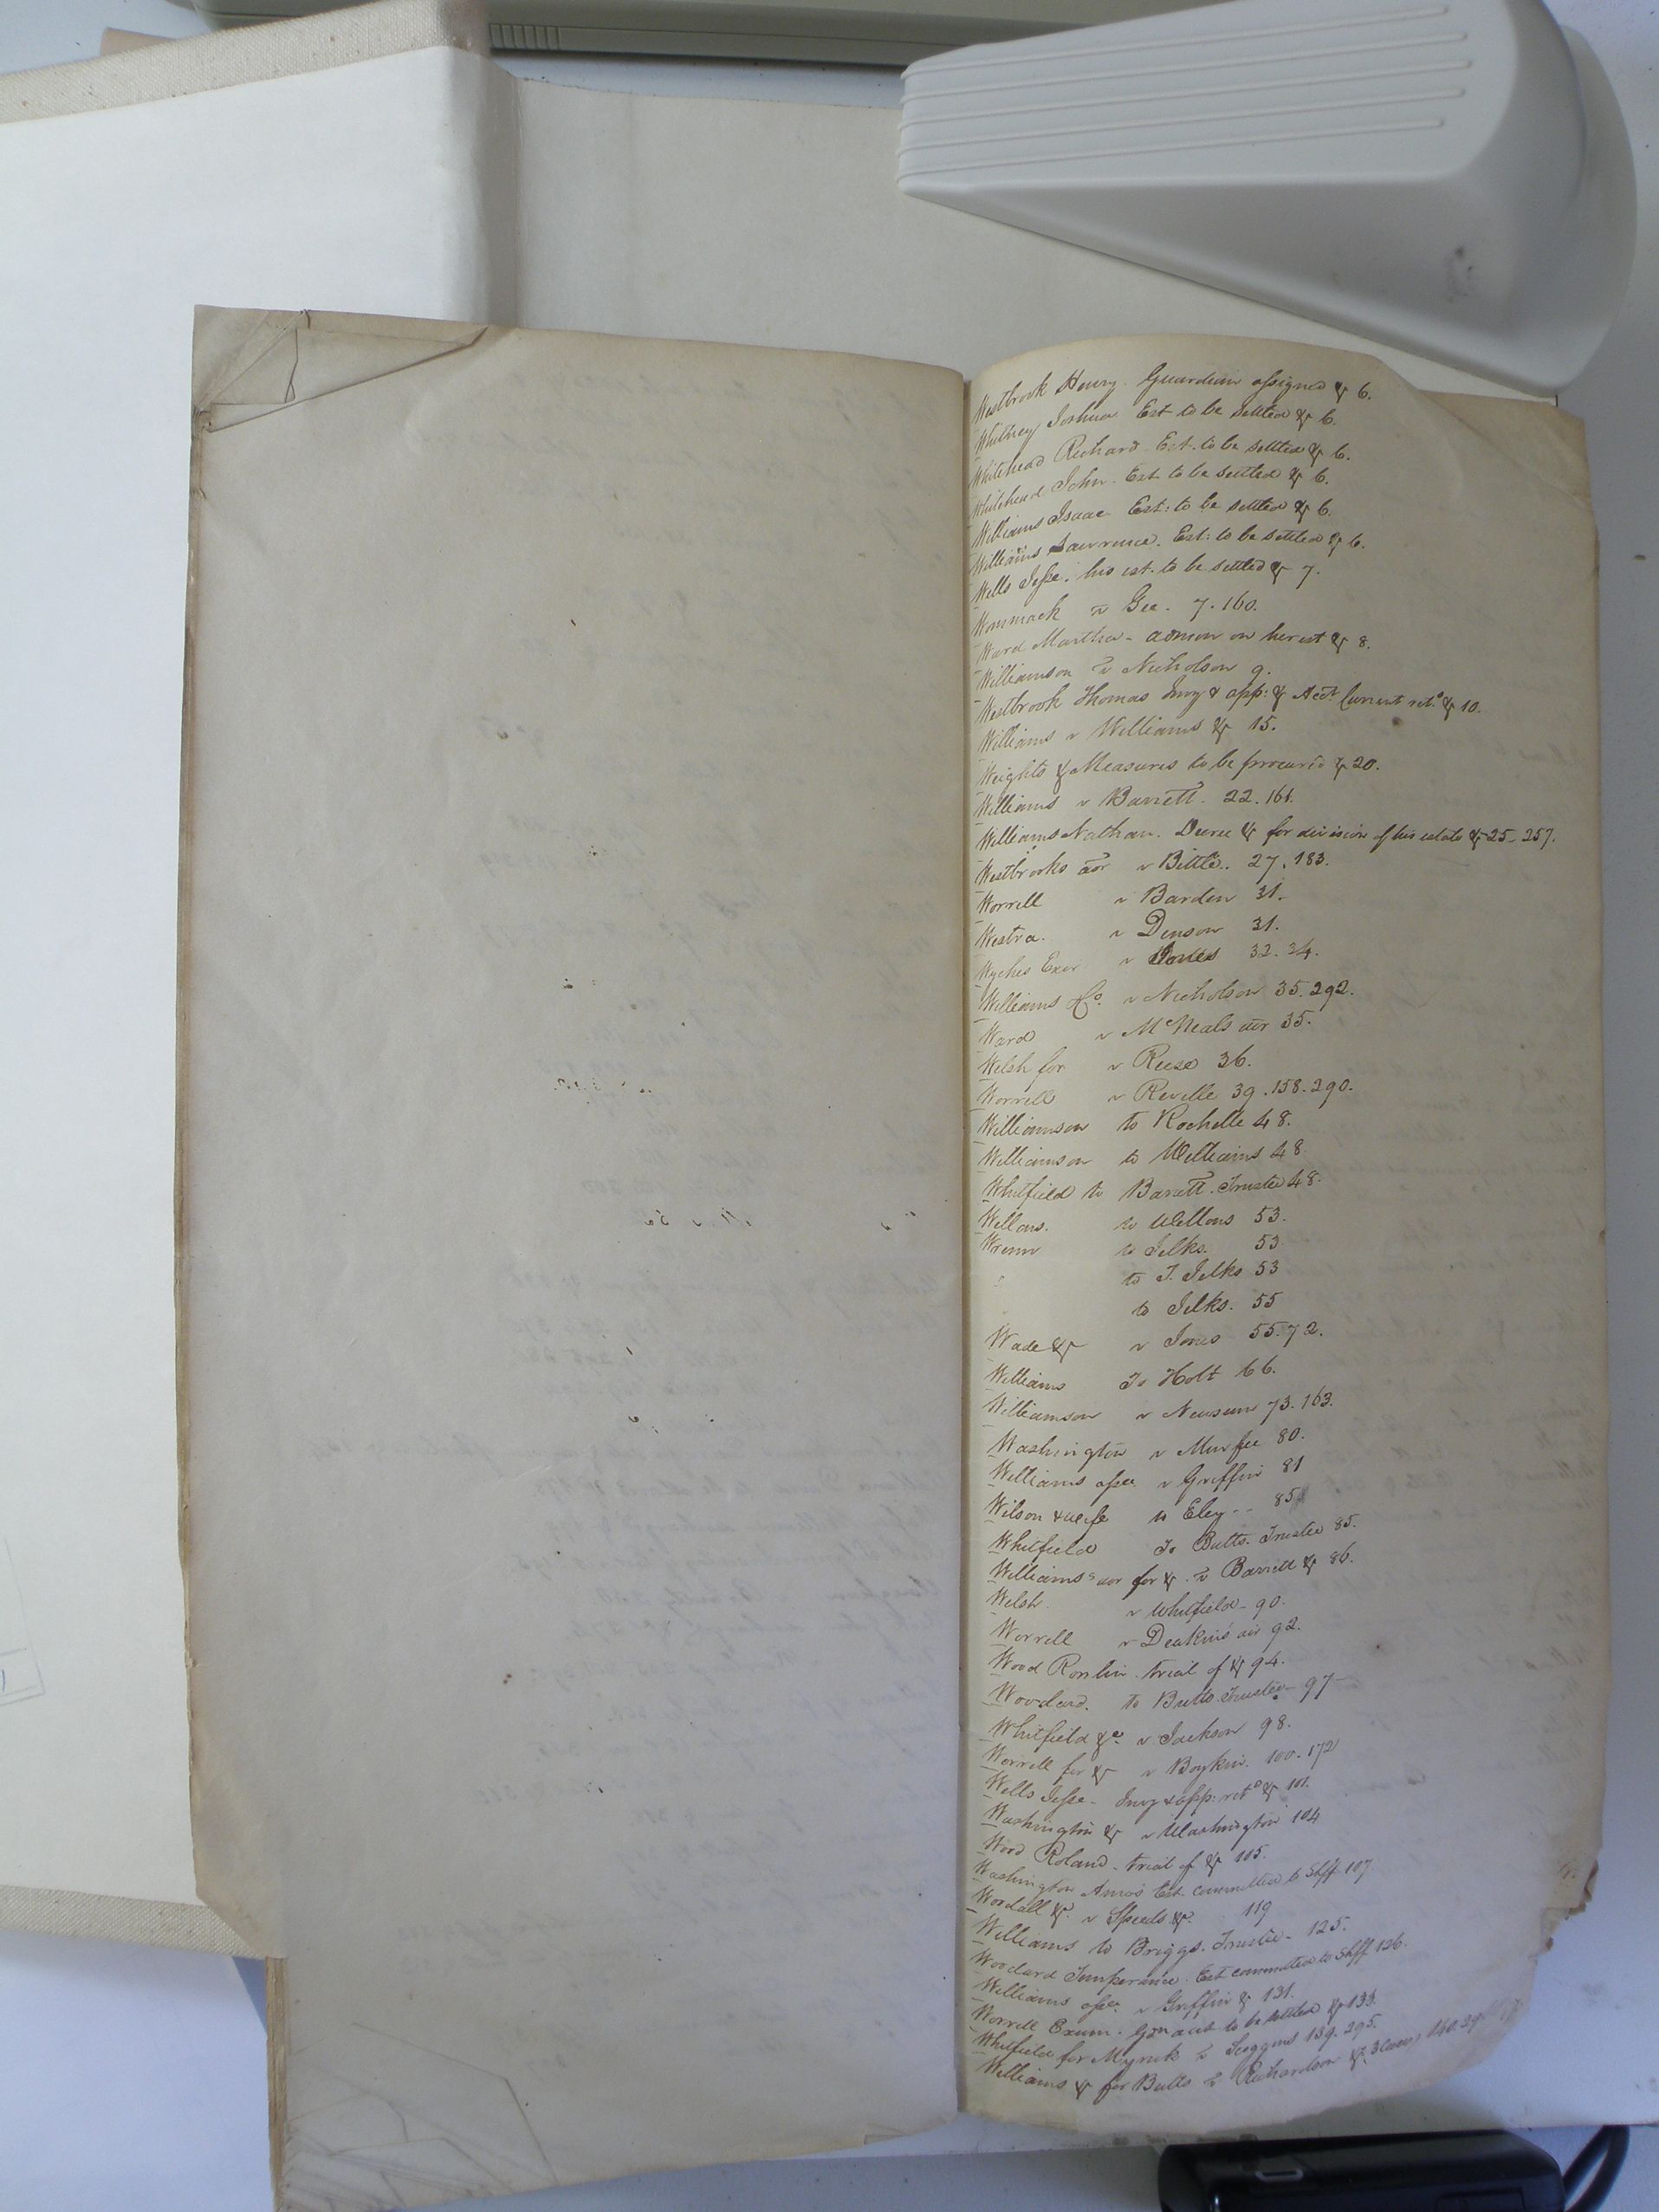 Westbrook Henry. Guardian assigned & 6.
Whitney Joshua Est to be settled & 6.
Whitehead Richard Est. to be settled & 6.
Whitehead John. Est to be settled & 6.
Williams Isaac Est: to be settled & 6.
Williams Lawrence. Est: to be settled & 6.
Wells Jesse. his est. to be settled & 7.
Wommack v Gee. 7. 160.
Ward Martha - admon on her est & 8.
Williamson v Nicholson 9.
Westbrook Thomas Invy & app: & Acct. Current retd. & 10.
Williams v Williams & 15.
Weights & Measures to be procured & 20.
Williams v Barrett. 22. 161.
Williams Nathan. Decree & for division of his estate & 25_ 257.
Westbrooks aor v Bittle.. 27. 183.
Worrell v Barden 31.
Westra. v Denson 31.
Wyches Exor v 32. 34.
Williams & Co. v Nicholson 35. 292.
Ward v McNeals air 35.
Welsh for v Reese 36.
Worrell v Reville 39. 158. 290.
Williamson to Rochelle 48.
Williamson to Williams 48
Whitfield to Barrett. Trustee 48.
Wellons. to Wellons 53.
Wrenn to Jelks. 53
to T. Jelks 53
to Jelks. 55
Wade & v Jones 55. 72.
Williams To Holt 66.
Williamson v Newsum 73. 163.
Washington v Murfee 80.
Williams assee v Griffin 81
Wilson & wife to Eley -- 85
Whitfield To Butts. Trustee 85.
Williams's aor for & v Barrett & 86.
Welsh v Whitfield - 90.
Worrell v Deakins air 92.
Wood Ronlin. trial of & 94.
Woodard. to Butts Trustee - 97 -
Whitfield &c. v Jackson 98.
Worrell for & v Boykin. 100. 172
Wells Jesse - Invy & app: retd & 101.
Washington & v Washington 104
Wood Roland - trial of & 105.
Washington Amos Est. committed to Shff 107.
Wordall &c. v Speeds &c. 119
Williams to Briggs. Trustee - 125.
Woodard Temperance. Est committed to Shff 126.
Williams assee. v Griffin & 131.
Worrell Exum. Gdn acct to be settled & 133.
Whitfield for Myrick v Scoggins 139. 295.
Williams & for Butts v Richardson & 3 Cases 140.